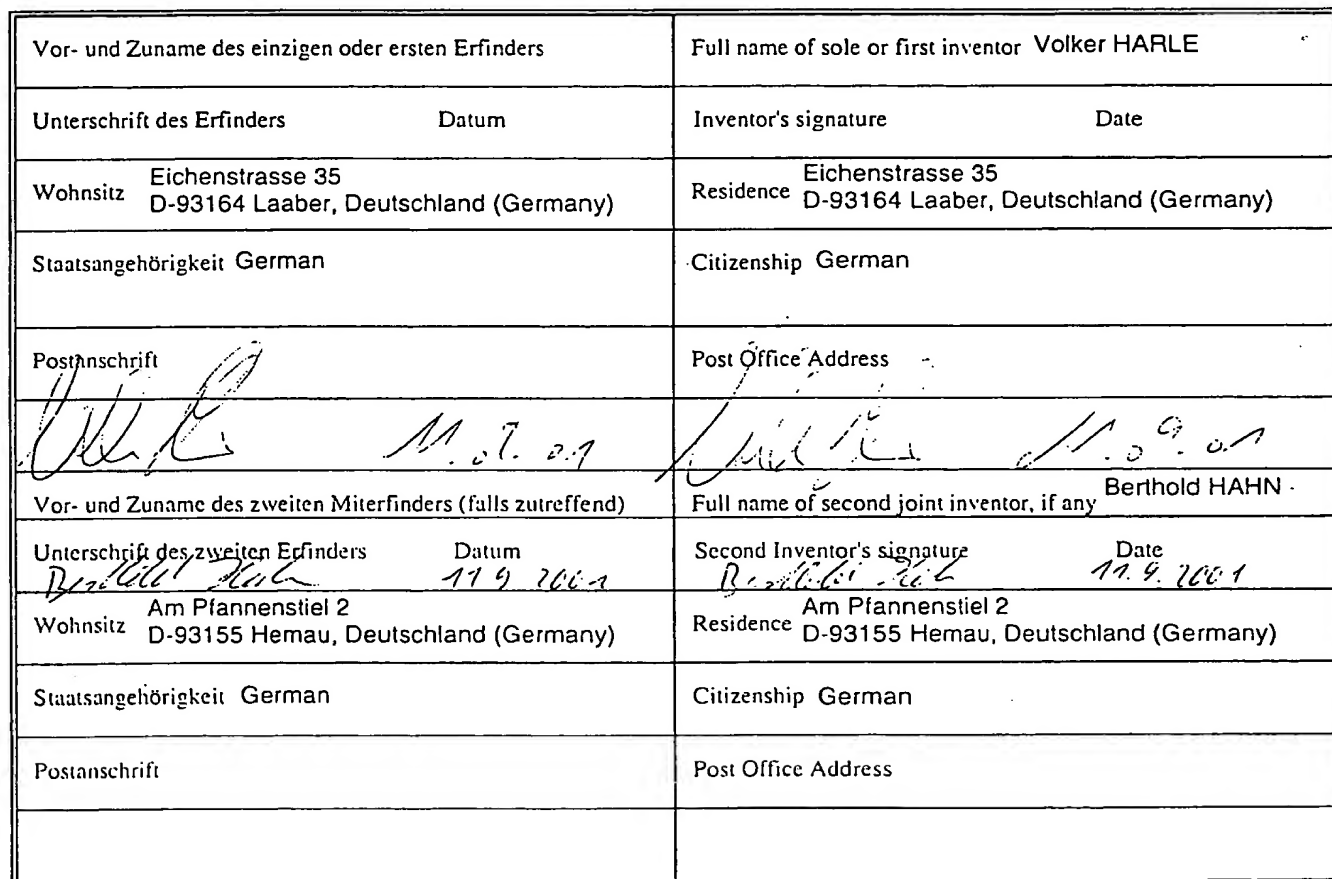 Vor- und Zuname des einzigen oder ersten Erfinders
Full name of sole or first inventor Volker HARLE
Unterschrift des Erfinders Datum
Inventor's signature Date
Wohnsitz Eichenstrasse 35
D-93164 Laaber, Deutschland (Germany)
Residence Eichenstrasse 35
D-93164 Laaber, Deutschland (Germany)
Staatsangehörigkeit German
Citizenship German
Postanschrift
Post Office Address
11.09.01
Vor- und Zuname des zweiten Miterfinders (falls zutreffend)
Full name of second joint inventor, if any Berthold HAHN
Unterschrift des zweiten Erfinders Datum
11 9 2001
Second Inventor's signature Date
11.9.2001
Wohnsitz Am Pfannenstiel 2
D-93155 Hemau, Deutschland (Germany)
Residence Am Pfannenstiel 2
D-93155 Hemau, Deutschland (Germany)
Staatsangehörigkeit German
Citizenship German
Postanschrift
Post Office Address